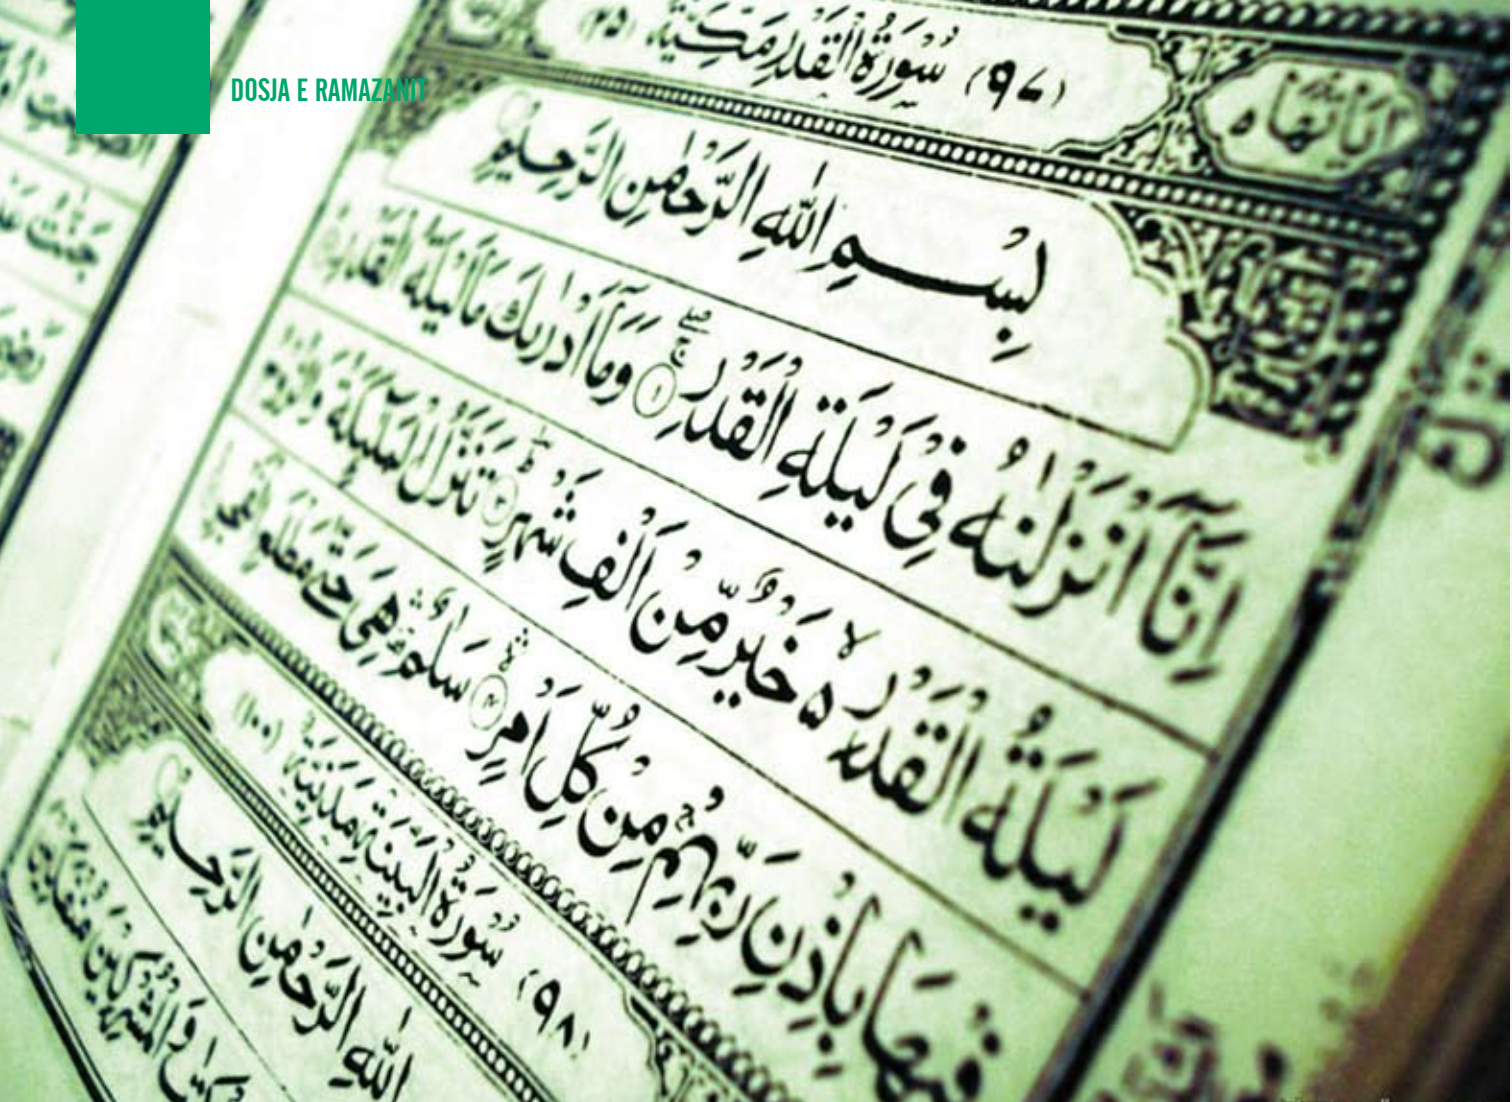 DOSJA E RAMAZANIT
(٩٧) سُوْرَةُ الْقَدْرِ مَكِّيَّةٌ (٢٥)
اٰيَاتُهَا ٥
بِسْمِ اللّٰهِ الرَّحْمٰنِ الرَّحِيْمِ
اِنَّآ اَنْزَلْنٰهُ فِيْ لَيْلَةِ الْقَدْرِ ۝١ وَمَآ اَدْرٰىكَ مَا لَيْلَةُ الْقَدْرِ
لَيْلَةُ الْقَدْرِ ۙ۬ خَيْرٌ مِّنْ اَلْفِ شَهْرٍ ۝٣ تَنَزَّلُ الْمَلٰٓئِكَةُ وَالرُّوْحُ
فِيْهَا بِاِذْنِ رَبِّهِمْ ۚ مِنْ كُلِّ اَمْرٍ ۝٤ سَلٰمٌ ۛ هِيَ حَتّٰى مَطْلَعِ الْفَجْرِ
(٩٨) سُوْرَةُ الْبَيِّنَةِ مَدَنِيَّةٌ (١٠٠)
اللّٰهِ الرَّحْمٰنِ الرَّحِيْمِ
وَالْمُشْرِكِيْنَ مُنْفَكِّيْنَ